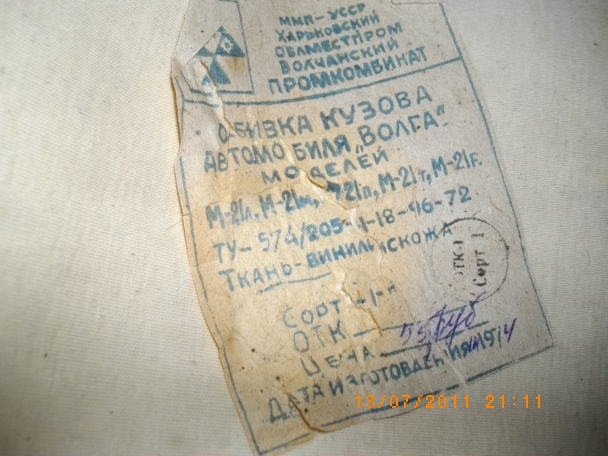 ММП-УССР
Харьковский
Облместпром
Волчанский
Промкомбинат
Обивка кузова
автомобиля "Волга"
моделей
М-21л, М-21м, 721л, М-21т, М-21г.
ТУ-574/205-1-18-46-72
Ткань-винилискожа
ОТК-1
Сорт 1
Сорт -1-й
ОТК
Цена
Дата изготовления
18/07/2011 21:11